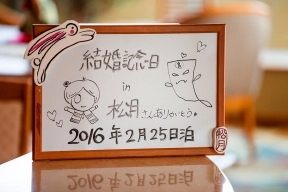 結婚記念日
in
松月さんありがとう
2016年2月25日泊
松月